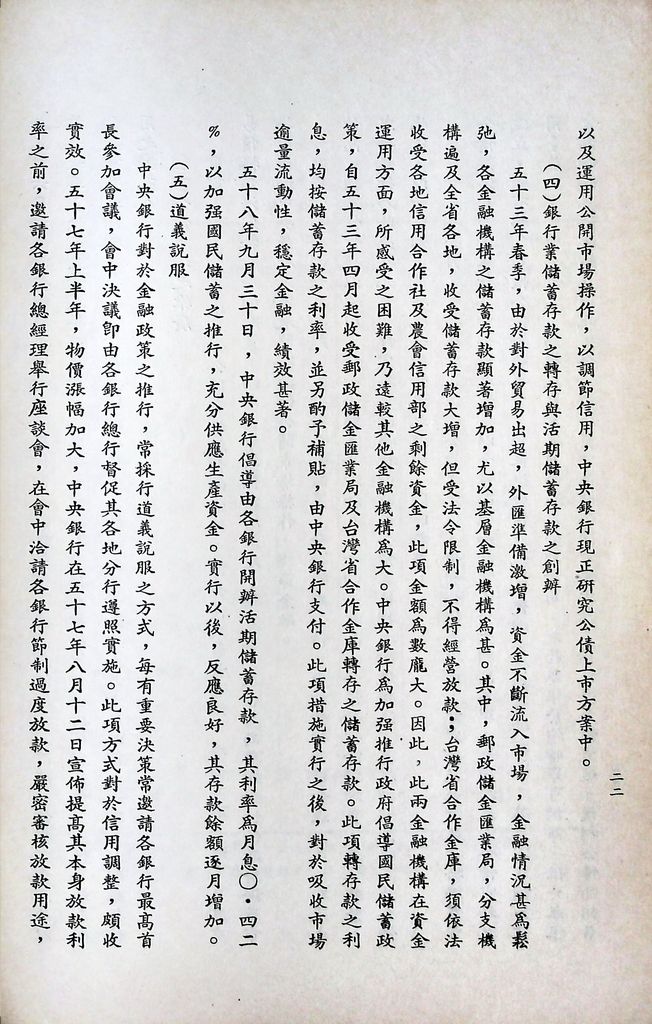 以及運用公開市場操作，以調節信用，中央銀行現正研究公債上市方案中。
(四)銀行業儲蓄存款之轉存與活期儲蓄存款之創辦
五十三年春季，由於對外貿易出超，外匯準備激增，資金不斷流入市場，金融情況甚爲鬆
弛，各金融機構之儲蓄存款顯著增加，尤以基層金融機構爲甚。其中，郵政儲金匯業局，分支機
構遍及全省各地，收受儲蓄存款大增，但受法令限制，不得經營放款；台灣省合作金庫，須依法
收受各地信用合作社及農會信用部之剩餘資金，此項金額爲數龐大。因此，此兩金融機構在資金
運用方面，所感受之困難，乃遠較其他金融機構爲大。中央銀行爲加强推行政府倡導國民儲蓄政
策，自五十三年四月起收受郵政儲金匯業局及台灣省合作金庫轉存之儲蓄存款。此項轉存款之利
息，均按儲蓄存款之利率，並另酌予補貼，由中央銀行支付。此項措施實行之後，對於吸收市場
逾量流動性，穩定金融，績效甚著。
五十八年九月三十日，中央銀行倡導由各銀行開辦活期儲蓄存款，其利率爲月息〇・四二
%，以加强國民儲蓄之推行，充分供應生產資金。實行以後，反應良好，其存款餘額逐月增加。
(五)道義說服
中央銀行對於金融政策之推行，常採行道義說服之方式，每有重要決策常邀請各銀行最高首
長參加會議，會中決議卽由各銀行總行督促其各地分行遵照實施。此項方式對於信用調整，頗收
實效。五十七年上半年，物價漲幅加大，中央銀行在五十七年八月十二日宣佈提高其本身放款利
率之前，邀請各銀行總經理舉行座談會，在會中洽請各銀行節制過度放款，嚴密審核放款用途，
二二